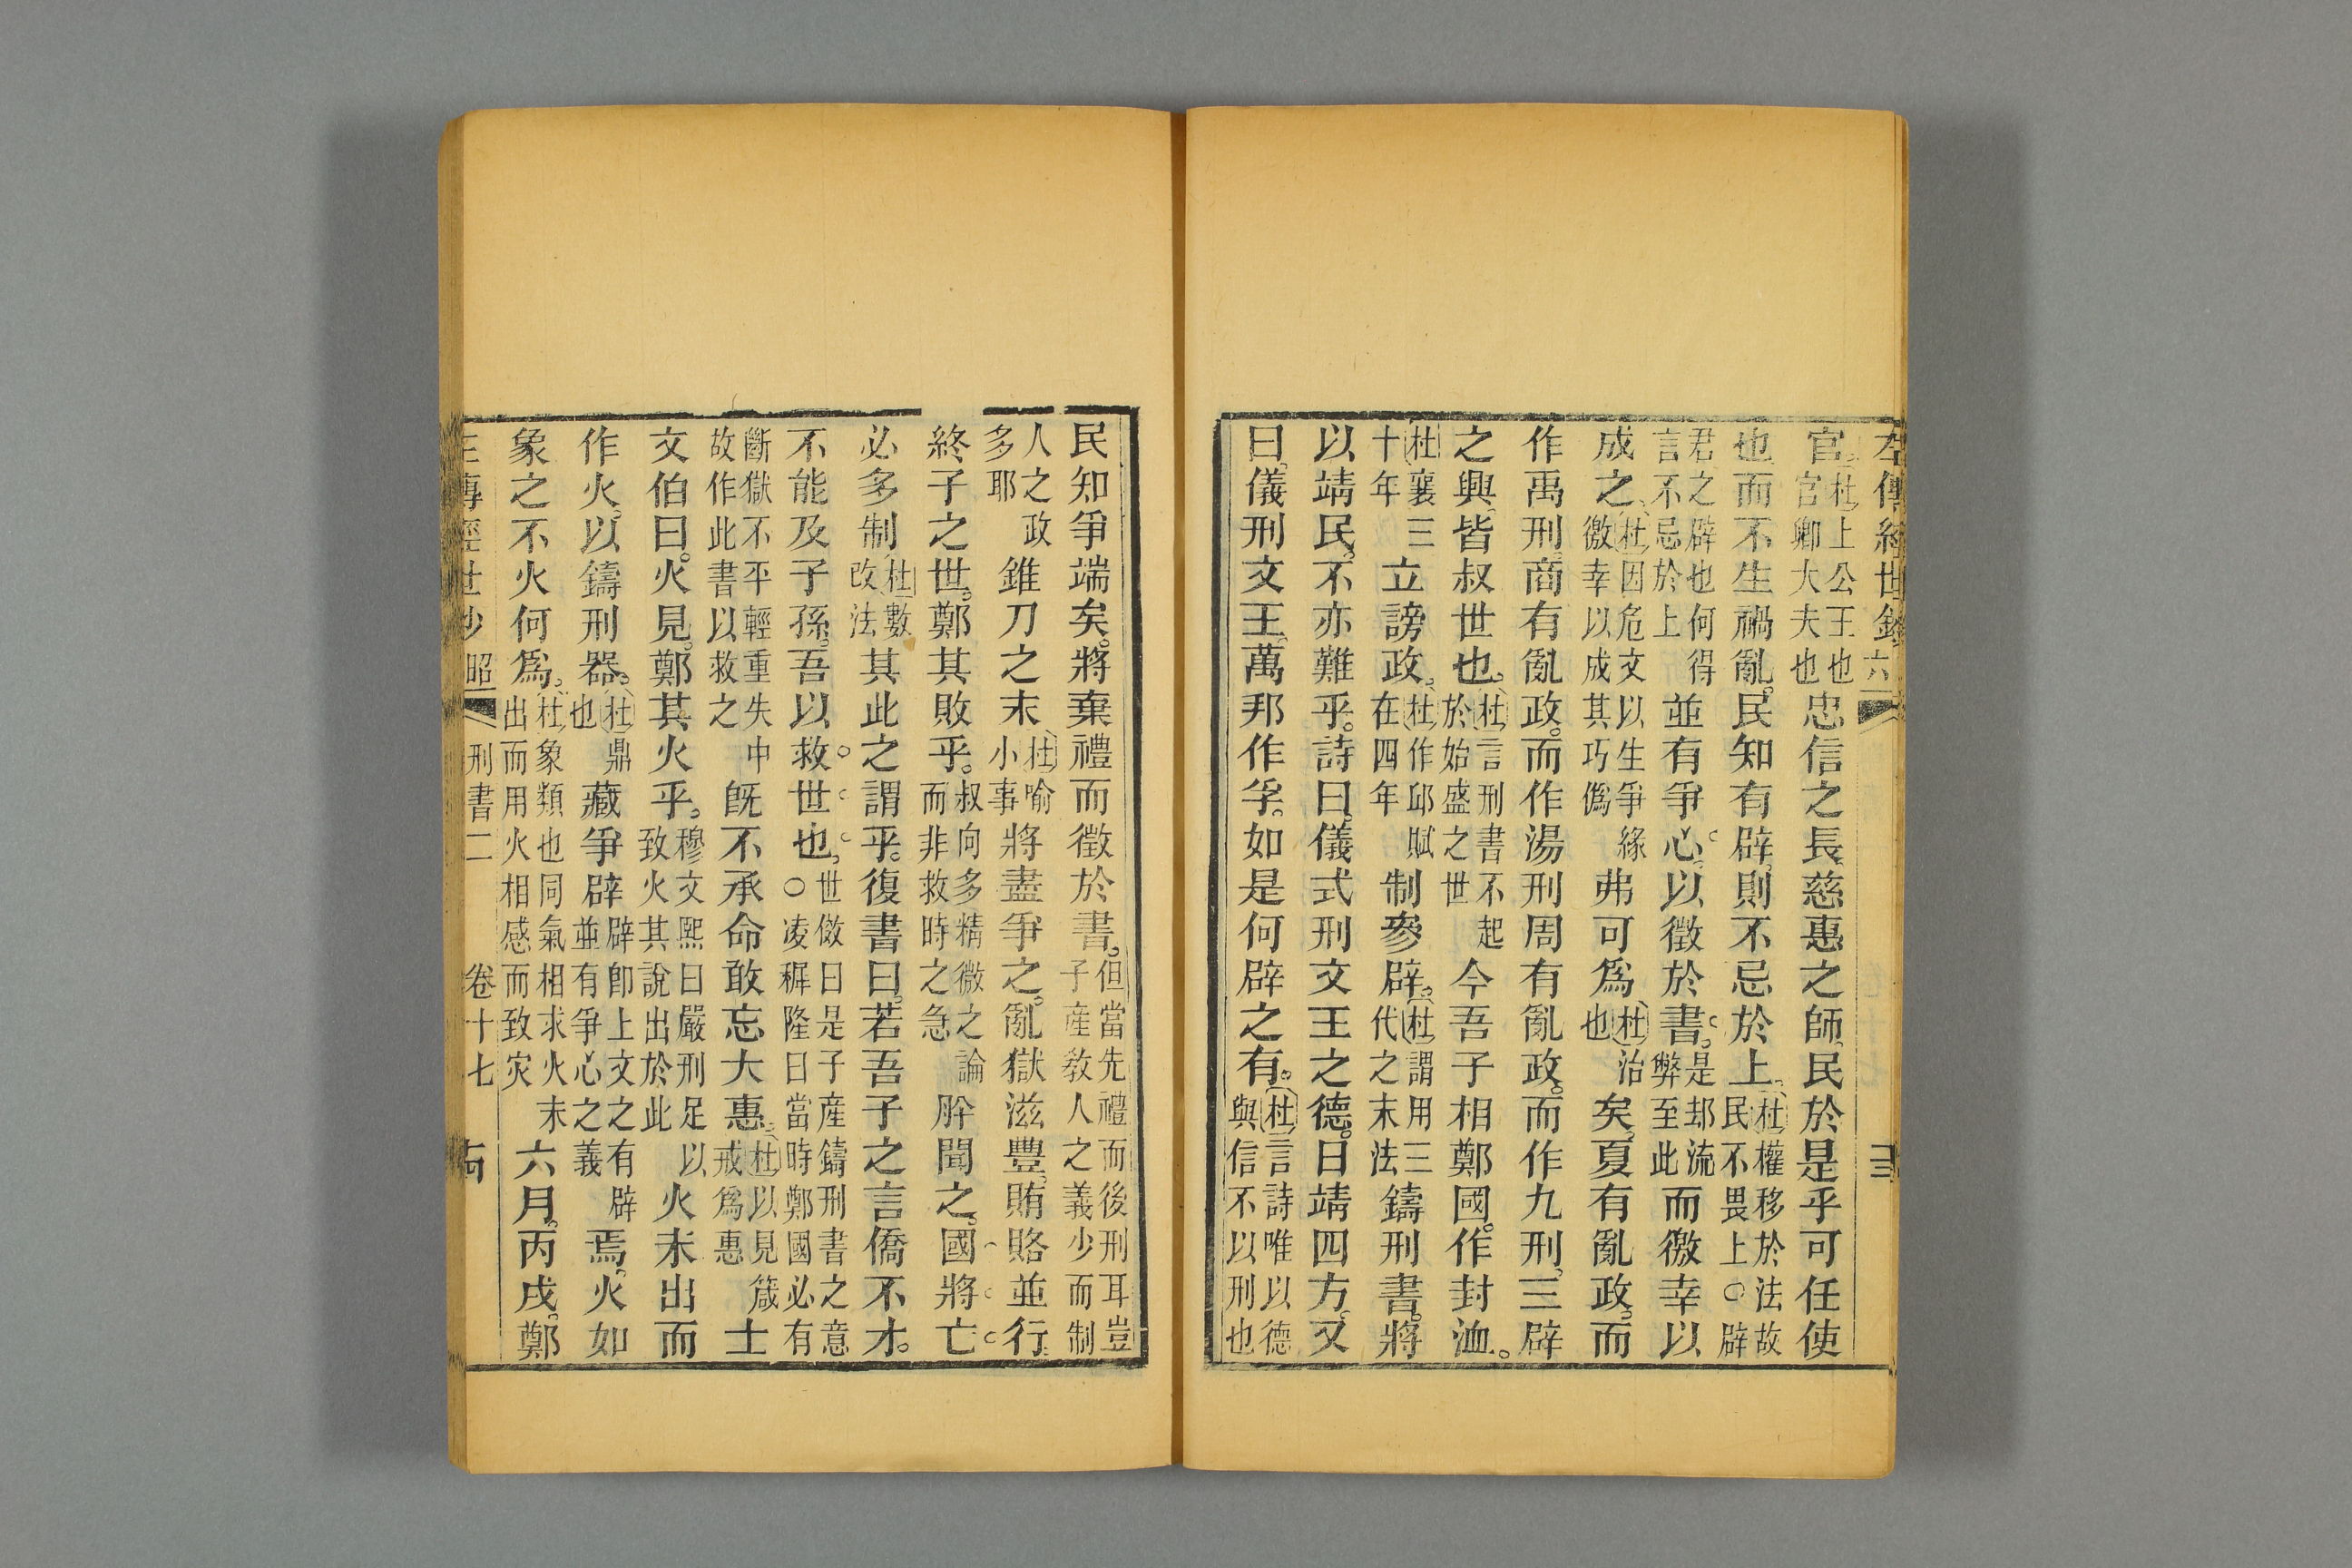 左傳經世鈔 六
官。杜上公王也官卿大夫也忠信之長慈惠之師民於是乎可任使
也而不生禍亂。民知有辟則不忌於上。杜權移於法故民不畏上〇辟
君之辟也何得言不忌於上並有爭心以徵於書。是弊至此却流而徼幸以
成之杜因危文以生爭緣徼幸以成其巧僞弗可爲杜治也矣夏有亂政而
作禹刑商有亂政。而作湯刑周有亂政。而作九刑三辟
之興皆叔世也。杜言刑書不起於始盛之世今吾子相鄭國。作封洫。
杜襄三十年立謗政。杜作邱賦在四年制參辟。杜謂用三代之末法鑄刑書。將
以靖民。不亦難乎。詩曰儀式刑文王之德。日靖四方又
曰儀刑文王萬邦作孚。如是何辟之有。杜言詩唯以德與信不以刑也
民知爭端矣。將棄禮而徵於書。但當先禮而後刑耳豈子產教人之義少而制
人之政多耶錐刀之末杜喻小事將盡爭之。亂獄滋豐賄賂並行
終子之世。鄭其敗乎。叔向多精微之論而非救時之急肸聞之國將亡
必多制杜數改法其此之謂乎。復書曰。若吾子之言僑不才。
不能及子孫。吾以救世也。世儆曰是子產鑄刑書之意〇凌稺隆曰當時鄭國必有
斷獄不平輕重失中故作此書以救之旣不承命敢忘大惠。杜以見箴戒爲惠士
文伯曰。火見。鄭其火乎。穆文熙曰嚴刑足以致火其說出於此火未出而
作火。以鑄刑器。杜鼎也藏爭辟辟卽上文之有辟並有爭心之義焉。火如
象之不火何爲。杜象類也同氣相求火未出而用火相感而致灾六月。丙戌。鄭
左傳經世鈔 昭 刑書二 卷十七